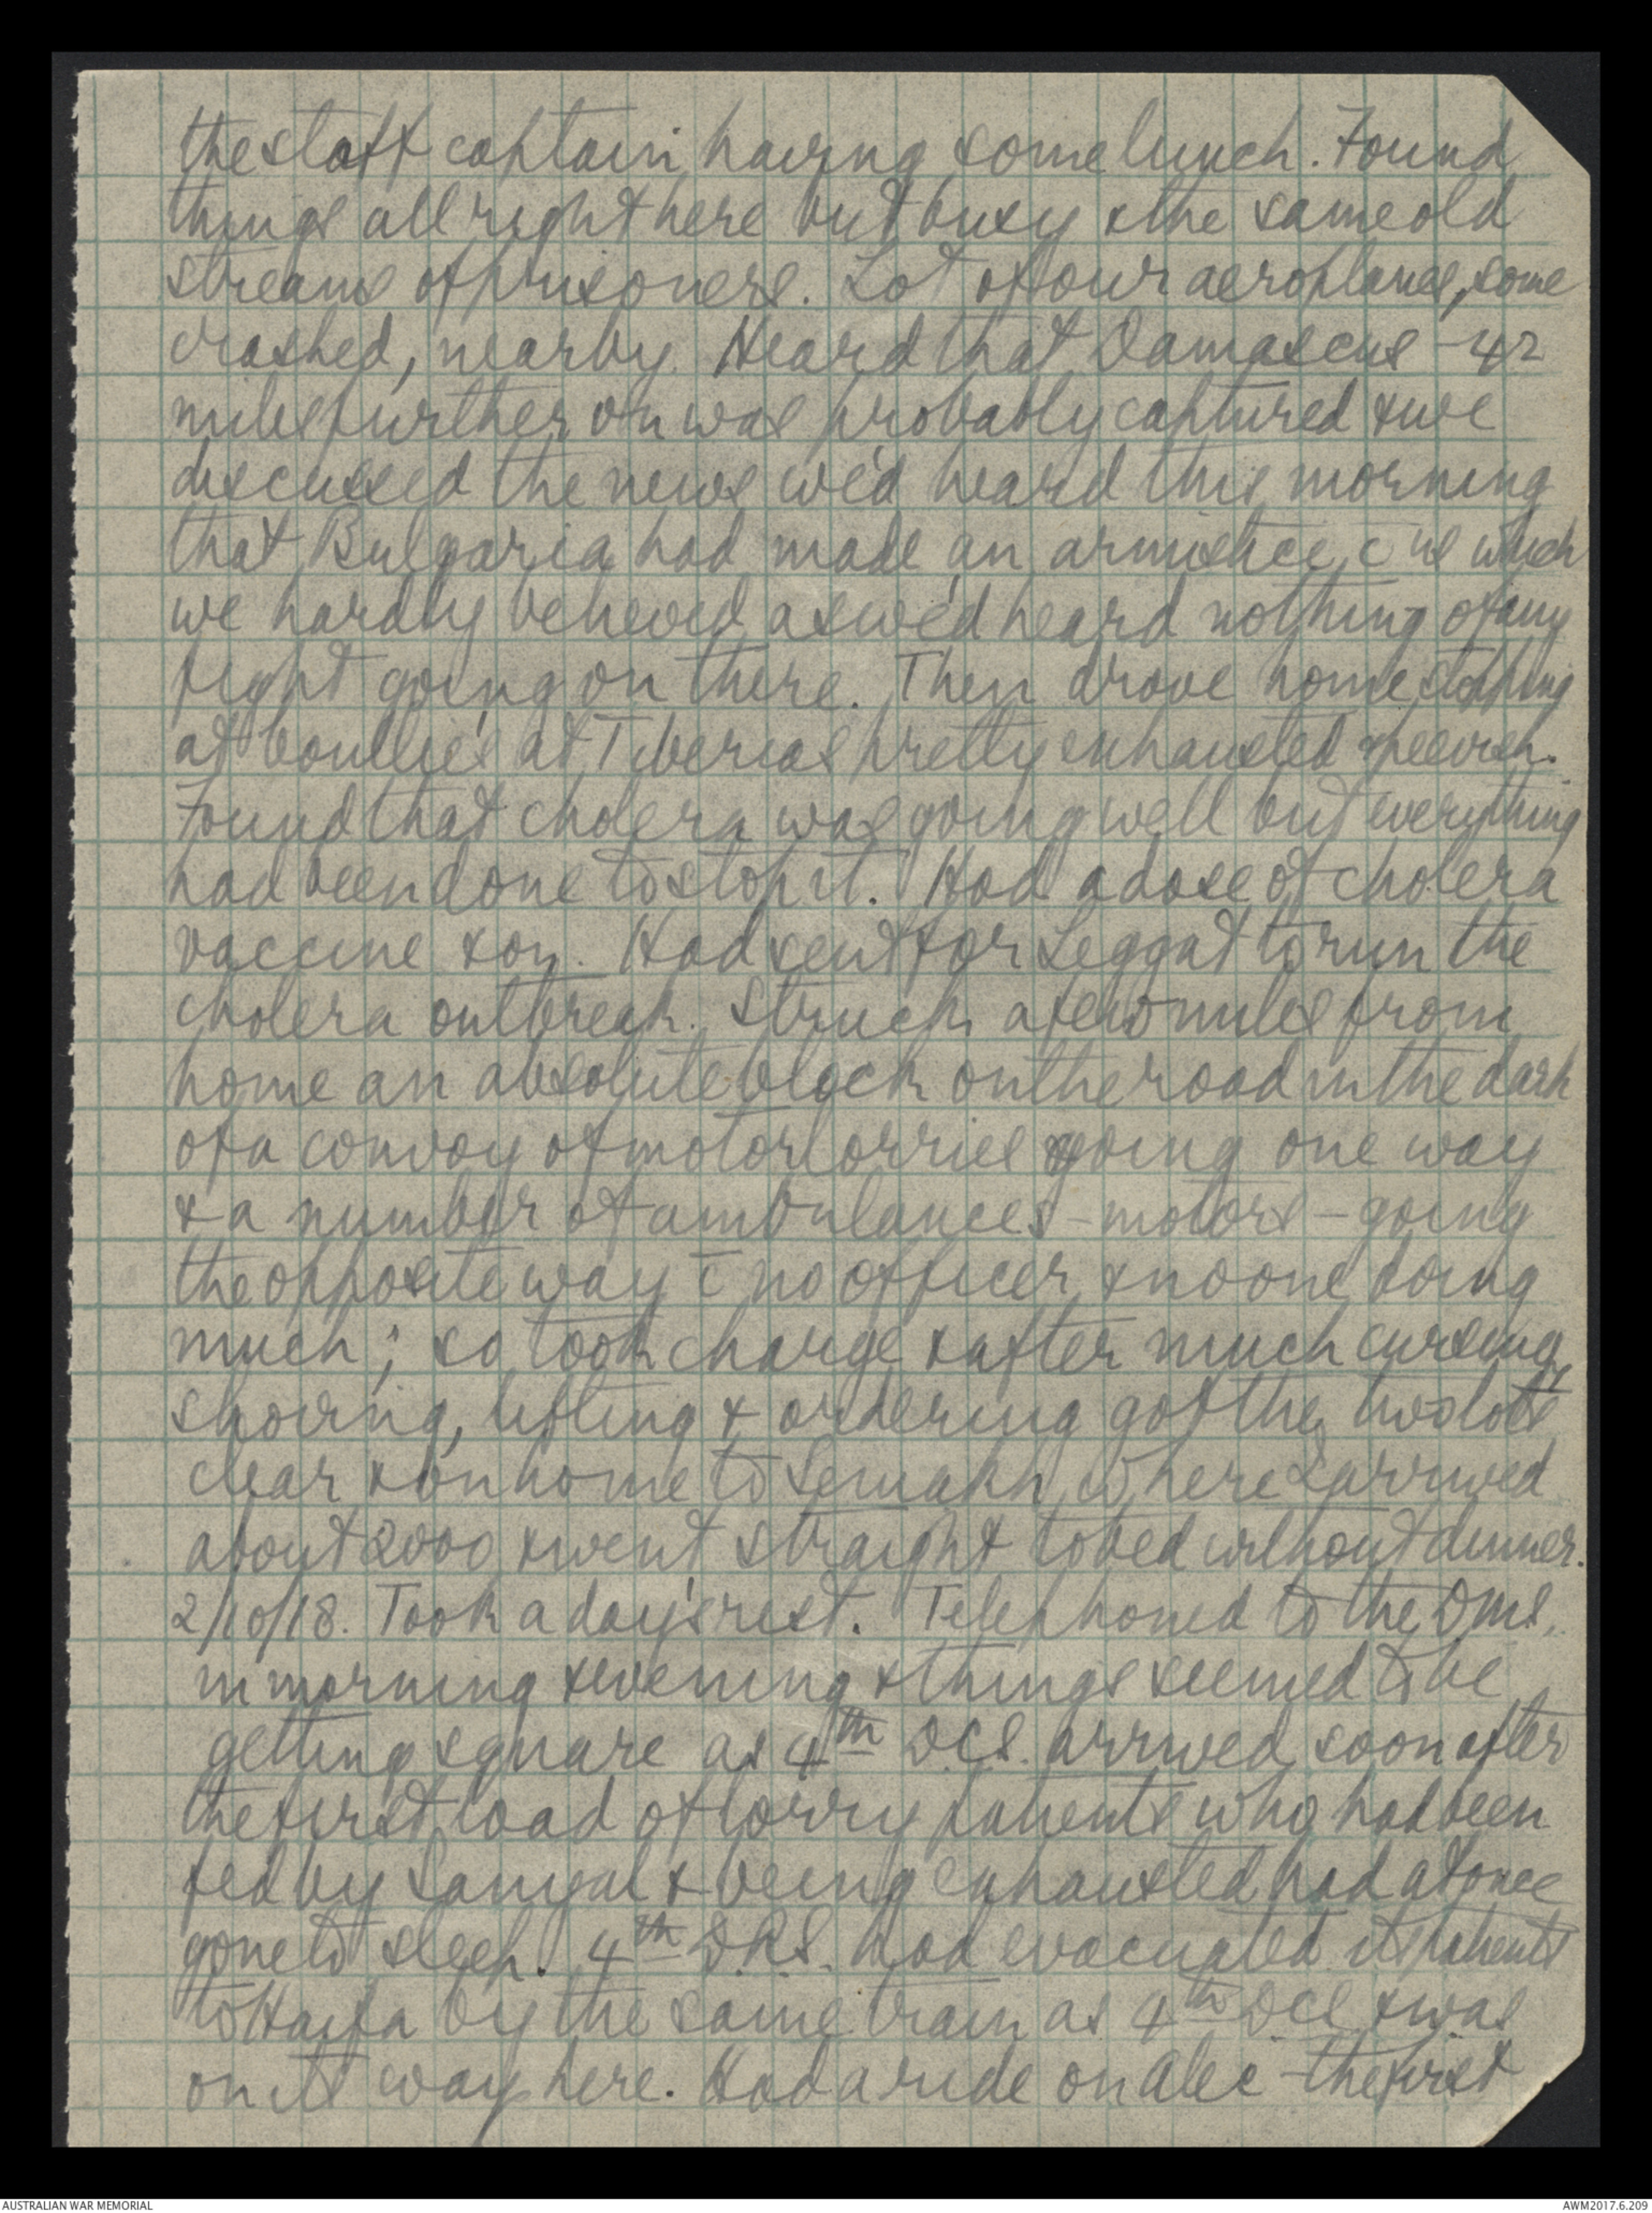 the staff captain having some lunch. Found
things all right here but busy & the same old
streams of prisoners. Lot of our aeroplanes, some
crashed, nearby. Heard that Damascus – 42
miles further on was probably captured & we
discussed the news we'd heard this morning
that Bulgaria had made an armistice c̄ us which
we hardly believed as we'd heard nothing of any
fight going on there. Then drove home stopping
at at Tiberias pretty exhausted & peevish.
Found that cholera was going well but everything
had been done to stop it. Had a dose of cholera
vaccine & on. Had sent for Leggat to run the
cholera outbreak. Struck a few miles from
home an absolute block on the road in the dark
of a convoy of motor lorries going one way
& a number of ambulances – motors – going
the opposite way c̄ no officer & no one doing
much; so took charge & after much cursing
shoving, lifting & ordering got the two lots
clear & on home to Semakh where I arrived
about 2000 & went straight to bed without dinner.
2/10/18. Took a day's rest. Telephoned to the DMS.
in morning & evening & things seemed to be
getting square as 4th DCS. arrived soon after
the first load of lorry patients who had been
fed by Sanyal & being exhausted had at once
gone to sleep. 4th D.R.S. had evacuated its patients
to Haifa by the same train as 4th DCS & was
on its way here. Had a ride on Alec – the first
AUSTRALIAN WAR MEMORIAL
AWM2017.6.209